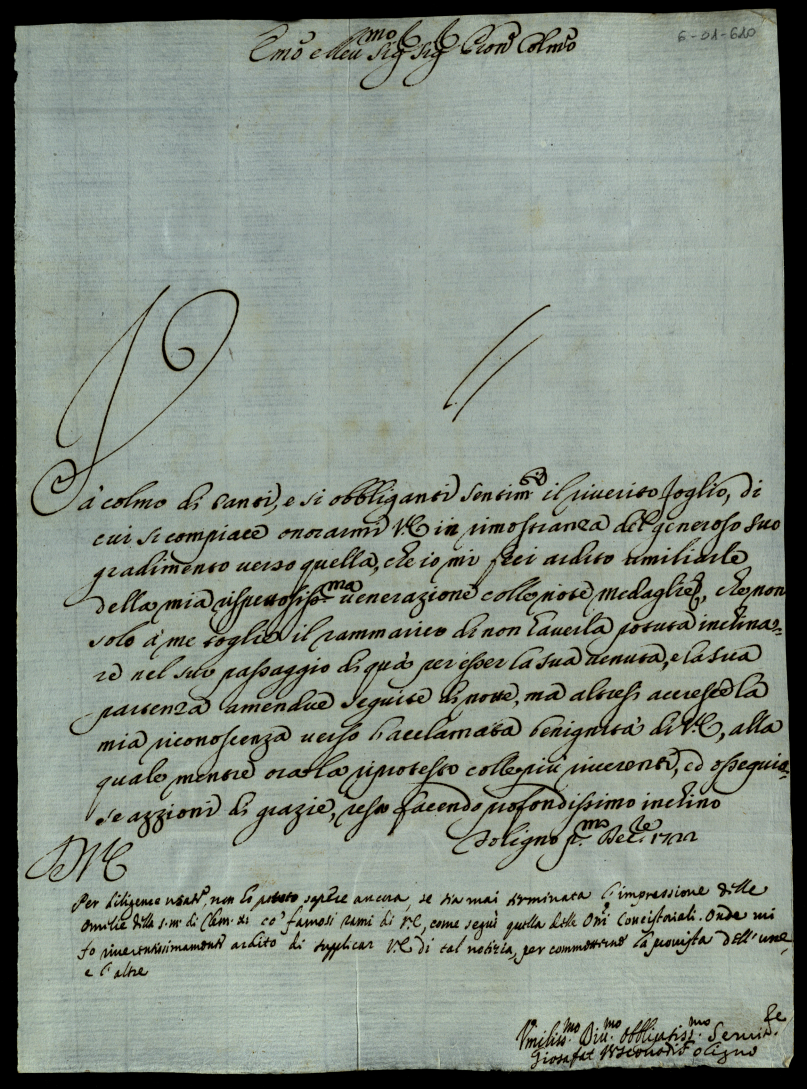 6-01-620
Em̃o e Reu^mo Sig^r Sig^r Pron̄ Colm̃o
à colmo di tanti, e si obbliganti sentim^ti il riverito foglio, di
cui si compiace onorarmi V.E. in rimostranza del generoso suo
gradimento verso quella, che io mi feci ardito umiliarle
della mia rispettosiss^ma venerazione colle note medaglie, che non
solo à me toglie il rammarico di non haverla potuta inchina-
re nel suo passaggio di quà per esser la sua venuta, e la sua
partenza amendue seguite di notte, ma altresì accresce la
mia riconoscenza verso l'acclamata benignità di V.E., alla
quale mentre ora la riprotesto colle più riverenti, ed ossequio-
se azzioni di grazie, resto facendo profondissimo inchino
Foligno p^mo Xbre 1722
Per diligenze usate, non hò potuto sapere ancora, se sia mai terminata l'impressione delle
Omelie della s.m. di Clem. XI co' famosi rami di V.E., come seguì quella delle Oni Concistoriali. Onde mi
fo riverentissimamente ardito di supplicar V.E. di tal notizia, per commetterne la provista dell'une
e l'altre
Umiliss^mo Div^mo Obbligatiss^mo Serui^re
Giosafat Vescovo di Foligno